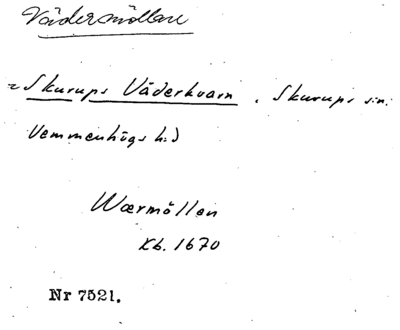 Vädermöllan
= Skurups Väderkvarn, Skurups sn.
Vemmenhögs hd
Wærmöllen
Kb. 1670
Nr 7521.